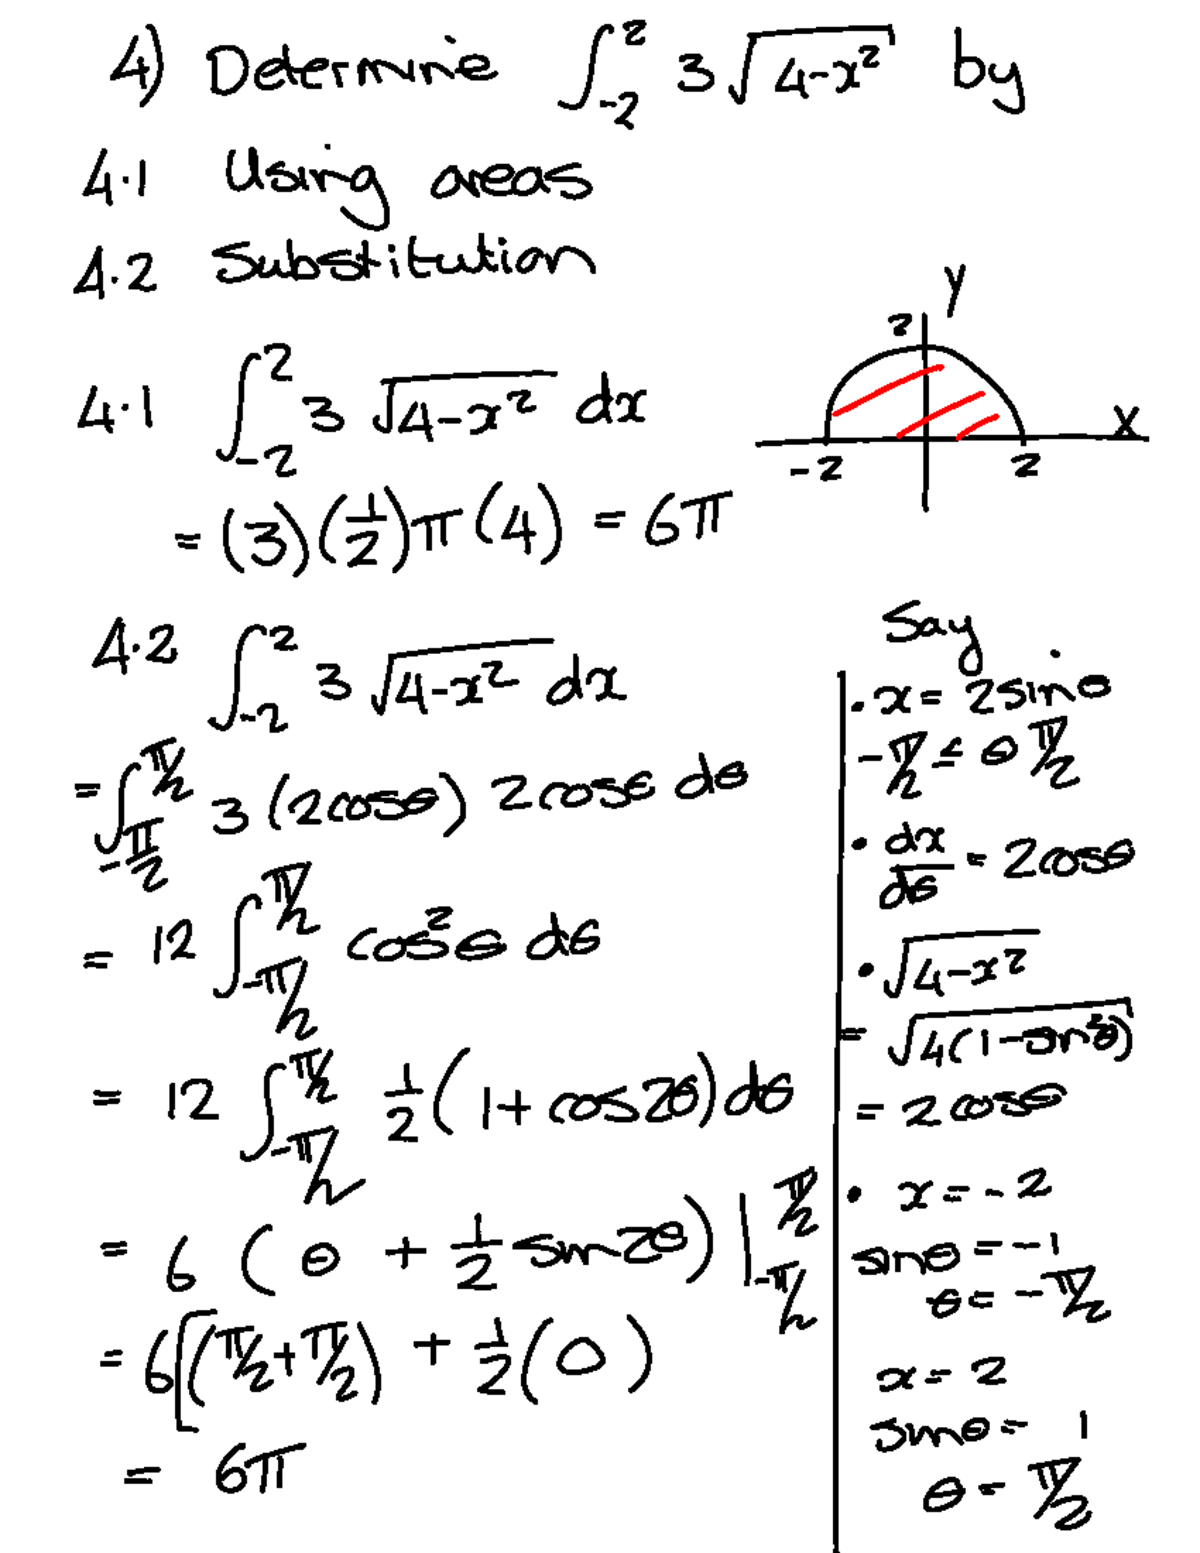 4) Determine ∫₋₂² 3√(4-x²) by
4.1 Using areas
4.2 Substitution
y
2
-2 2 x
4.1 ∫₋₂² 3 √(4-x²) dx
= (3)(1/2)π(4) = 6π
4.2 ∫₋₂² 3 √(4-x²) dx
= ∫_{-π/2}^{π/2} 3 (2cosθ) 2cosθ dθ
= 12 ∫_{-π/2}^{π/2} cos²θ dθ
= 12 ∫_{-π/2}^{π/2} 1/2 (1+cos2θ)dθ
= 6 (θ + 1/2 sin2θ) |_{-π/2}^{π/2}
= 6[(π/2+π/2) + 1/2(0)
= 6π
Say
• x = 2sinθ
-π/2 ≤ θ π/2
• dx/dθ = 2cosθ
• √(4-x²)
= √(4(1-sin²θ))
= 2cosθ
• x = -2
sinθ = -1
θ = -π/2
x = 2
sinθ = 1
θ = π/2